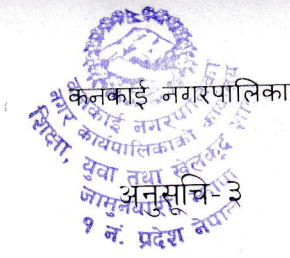 कनकाई नगरपालिका
अनुसूचि-३
कनकाई नगरपालिका
नगर कार्यपालिकाको कार्यालय
शिक्षा, युवा तथा खेलकूद शाखा
१ नं. प्रदेश नेपाल